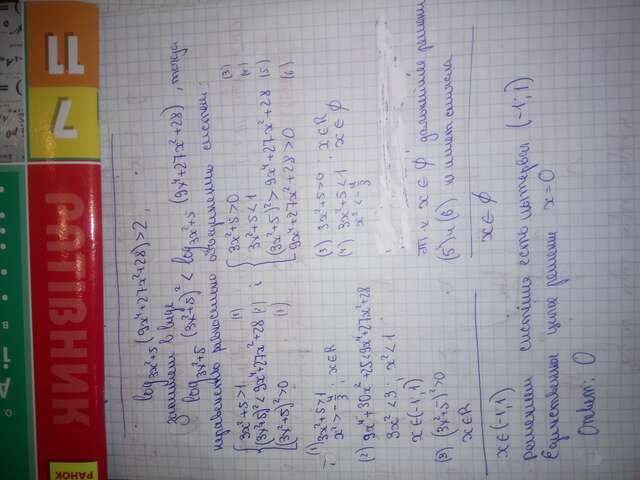 log_{3x²+5} (9x⁴+27x²+28) > 2,
запишем в виде
log_{3x²+5} (3x²+5)² < log_{3x²+5} (9x⁴+27x²+28), тогда
неравенство равносильно объединению систем:
{ 3x²+5>1 (1)
(3x²+5)² < 9x⁴+27x²+28 (2) ;
(3x²+5)²>0 (1)
{ 3x²+5>0 (3)
3x²+5<1 (4)
(3x²+5)² > 9x⁴+27x²+28 (5)
9x⁴+27x²+28>0 (6)
(1) 3x²+5>1
x² > -4/3 ; x∈R
(2) 9x⁴+30x²+25<9x⁴+27x²+28
3x²<3 ; x²<1
x∈(-1;1)
(3) (3x²+5)²>0
x∈R
x∈(-1;1)
(3) 3x²+5>0 x∈R
(4) 3x²+5<1
x²<-4/3 x∈∅
т к x∈∅, дальнейшее решение
(5) и (6) не имеет смысла
x∈∅
решением системы есть интервал (-1;1)
Единственное целое решение x=0
Ответ: 0
РАНОК
7
11